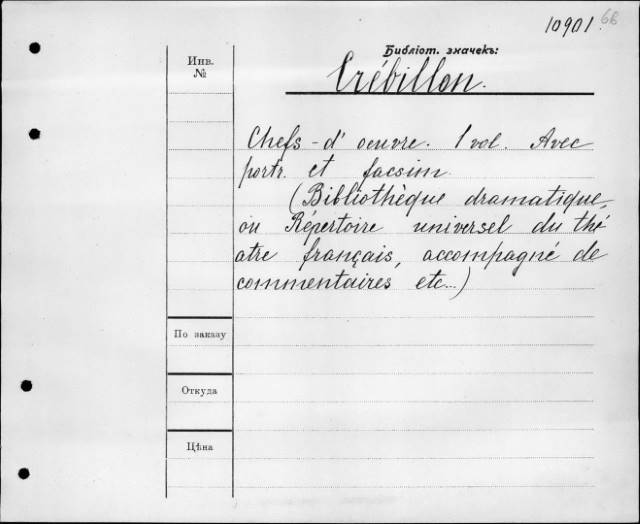 10901. 66
Библіот. значекъ:
Инв.
№
Crébillon.
Chefs-d'oeuvre. 1 vol. Avec
portr. et facsim.
(Bibliothèque dramatique,
ou Répertoire universel du thé
atre français, accompagné de
commentaires etc...)
По заказу
Откуда
Цѣна